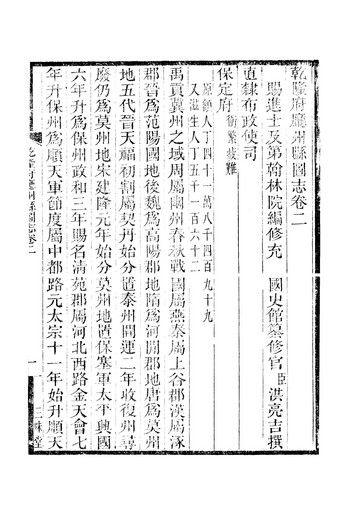 乾隆府廳州縣圖志卷二
賜進士及第翰林院編修充 國史館纂修官臣洪亮吉撰
直隸布政使司
保定府 衝繁疲難
原額人丁四十一萬八千四百九十九
又滋生人丁五千一百六十二
禹貢冀州之域周屬幽州春秋戰國屬燕秦屬上谷郡漢屬涿
郡晉爲范陽國地後魏爲高陽郡地隋爲河間郡地唐爲莫州
地五代晉天福初割屬契丹始分置泰州開運二年收復州尋
廢仍爲莫州地宋建隆元年始分莫州地置保塞軍太平興國
六年升爲保州政和三年賜名清苑郡屬河北西路金天會七
年升保州爲順天軍節度屬中都路元太宗十一年始升順天
乾隆府廳州縣圖志卷二
一
三味堂